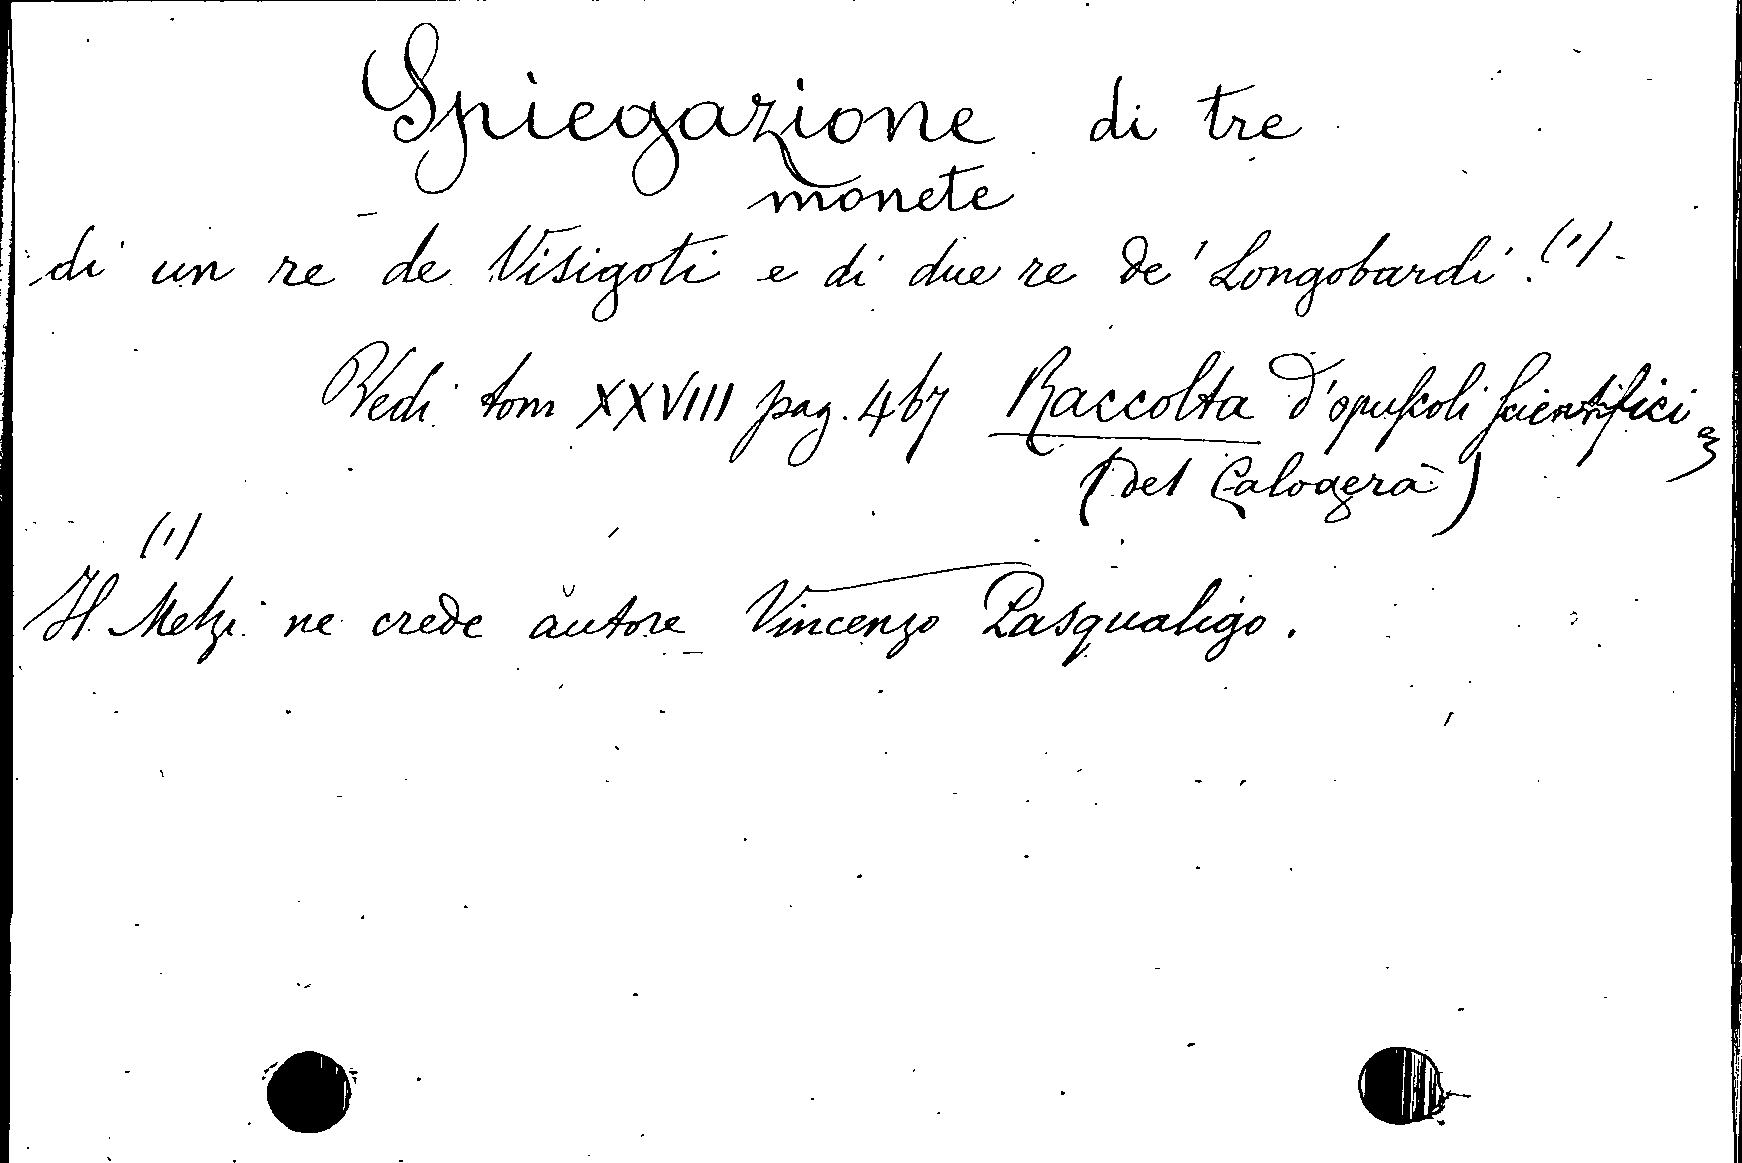 Spiegazione di tre
monete
di un re de Visigoti e di due re de' Longobardi. (1)
Vedi tom XXVIII pag. 467 Raccolta d'opuscoli scientifici
(Del Calogerà)
(1)
Il Melzi ne crede autore Vincenzo Pasqualigo.